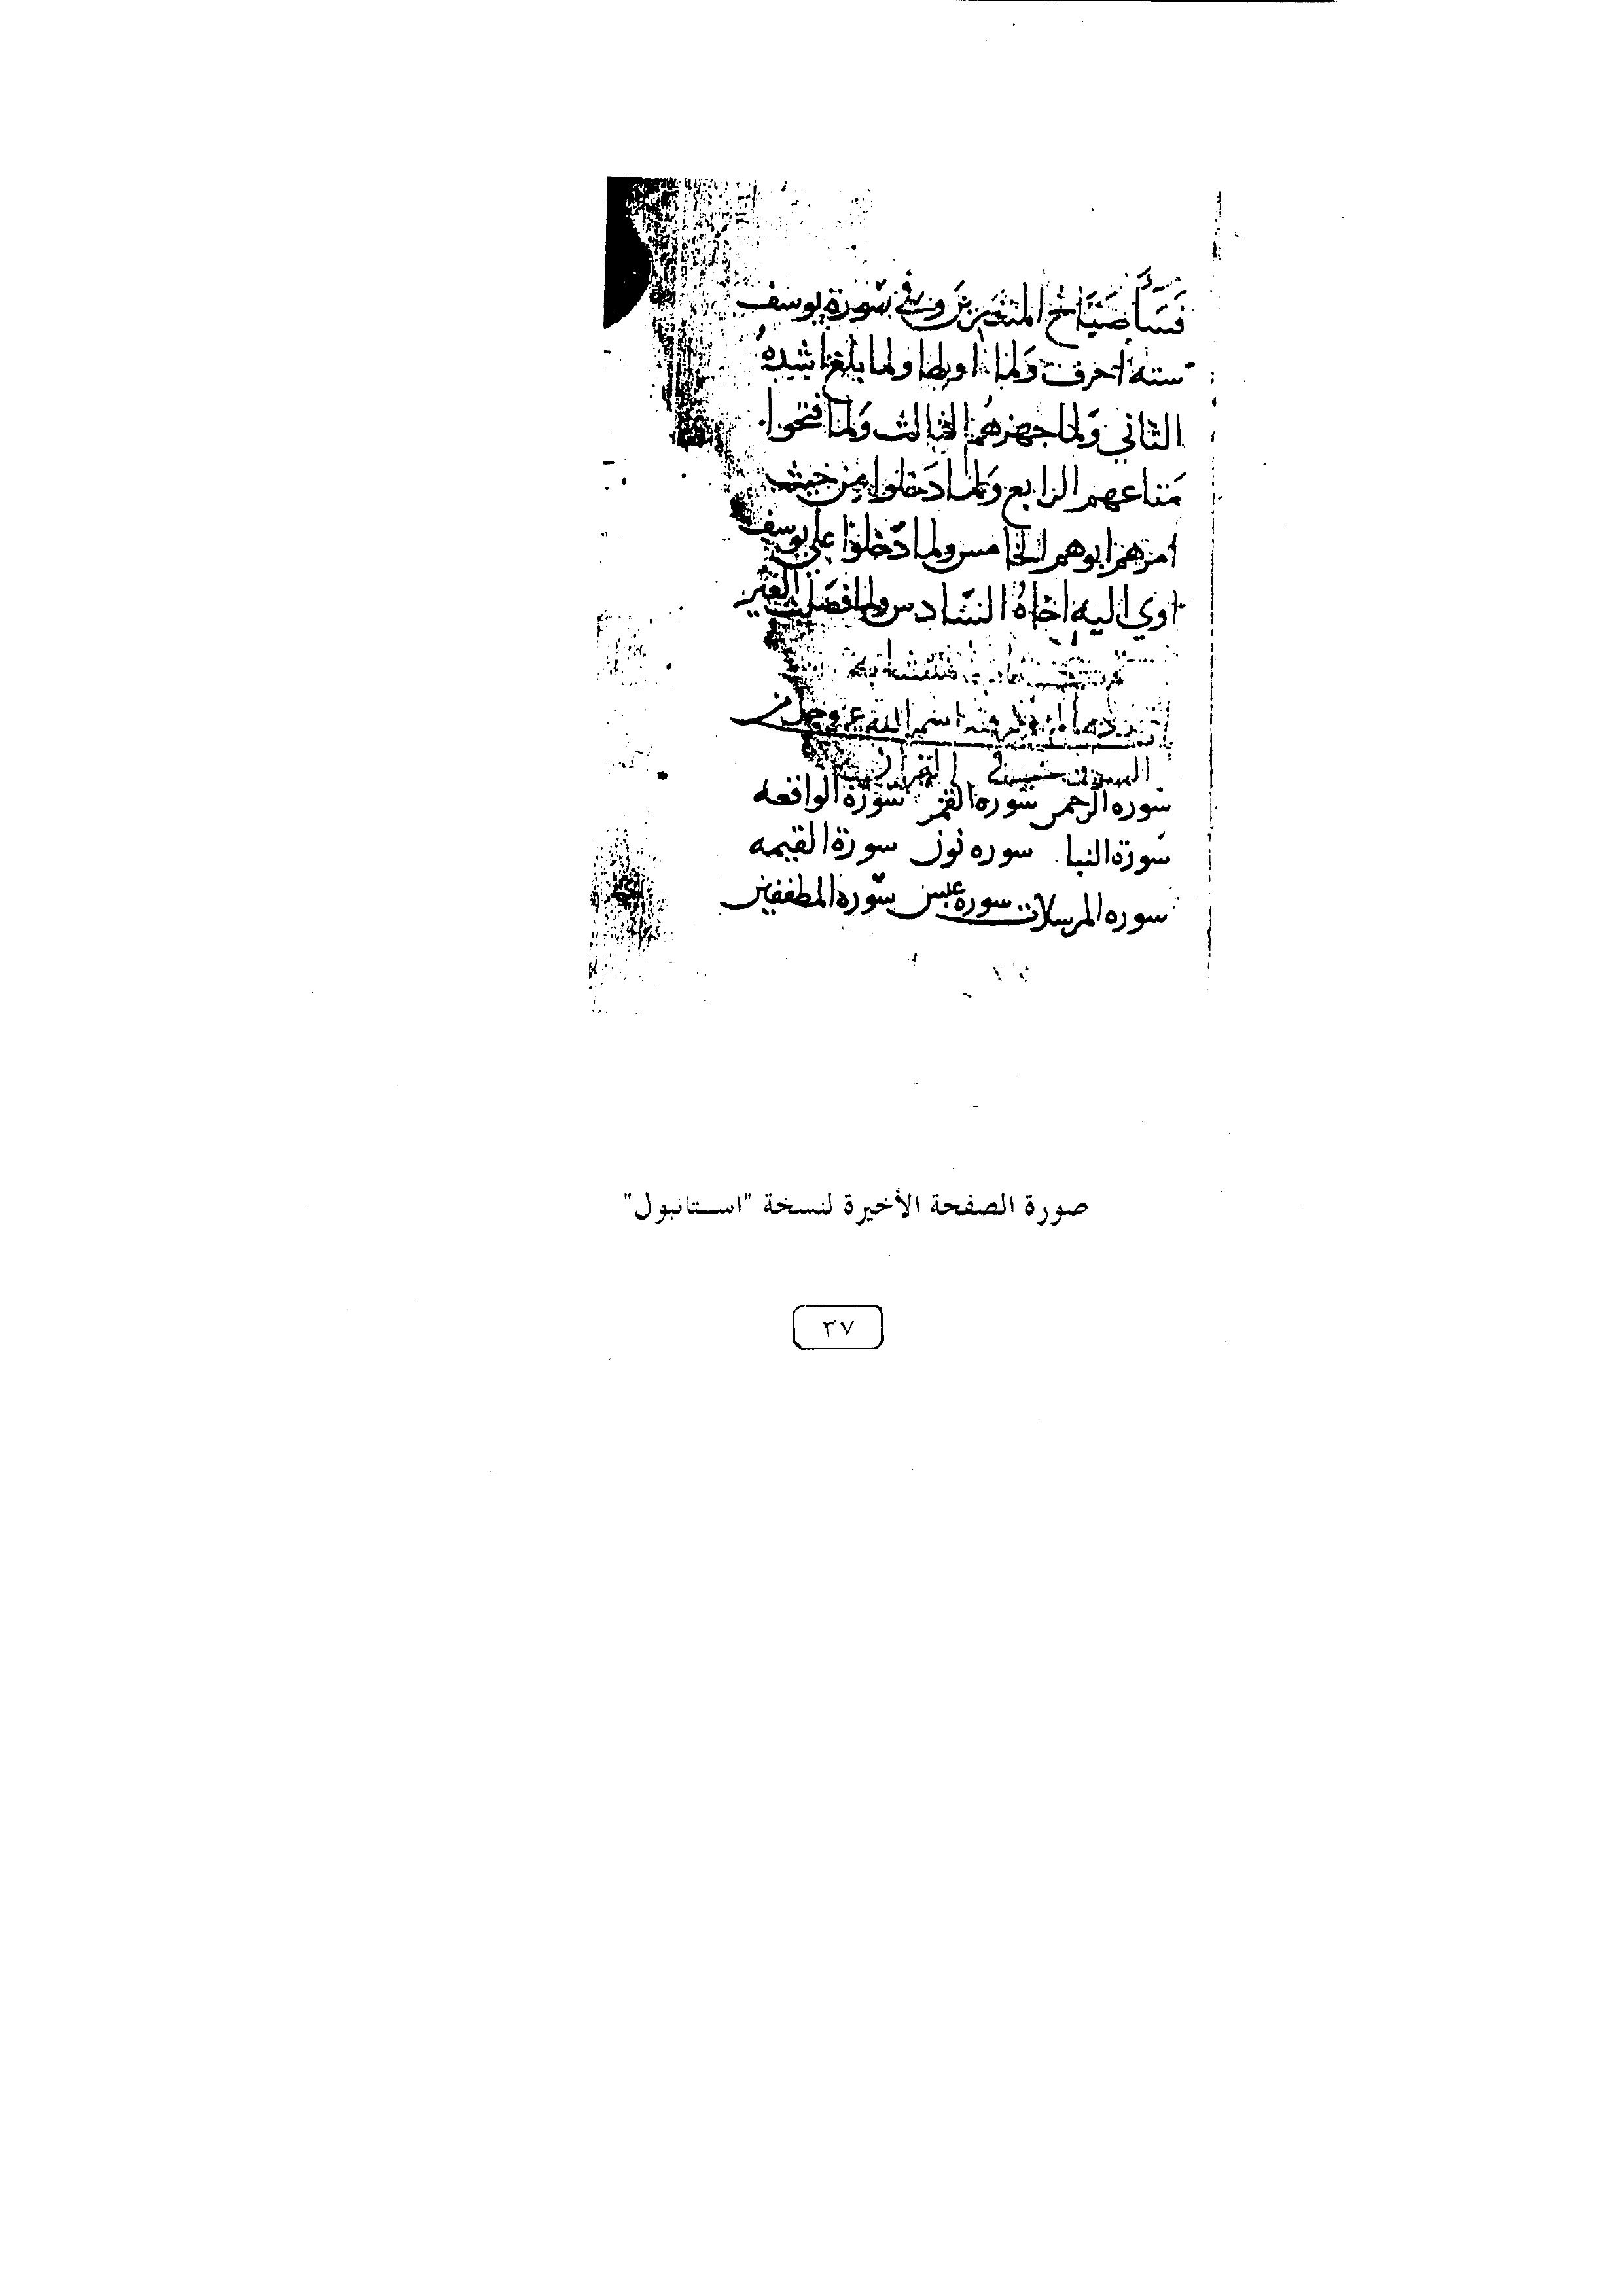 فَسَأصَبَاحُ المنذرين وفي سورة يوسف
ستة احرف ولما اولها ولما بلغ اشده
الثاني ولما جهزهم الثالث ولما فتحوا
متاعهم الرابع ولما دخلوا من حيث
امرهم ابوهم الخامس ولما دخلوا على يوسف
اوي اليه اخاه السادس ولما فصلت العير
اسم الله عز وجل من
في القران
سوره الرحمن سوره القمر سورة الواقعه
سورة النبا سوره نون سورة القيمه
سوره المرسلات سوره عبس سورة المطففين
صورة الصفحة الأخيرة لنسخة "استانبول"
٣٧